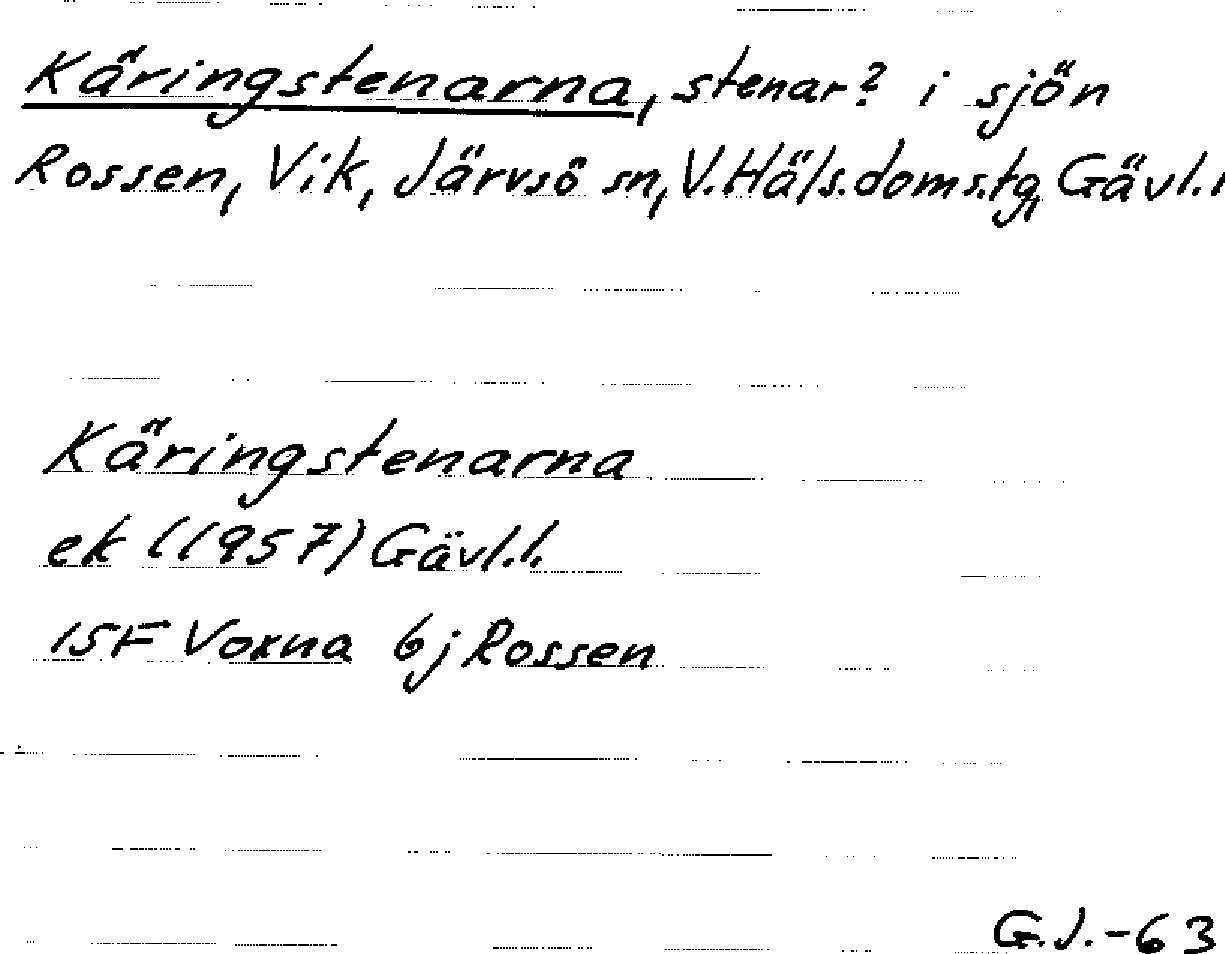 Käringstenarna, stenar? i sjön
Rossen, Vik, Järvsö sn, V.Häls.doms.tg, Gävl.l
Käringstenarna
ek (1957) Gävl.l.
15F Voxna 6j Rossen
G.J.-63